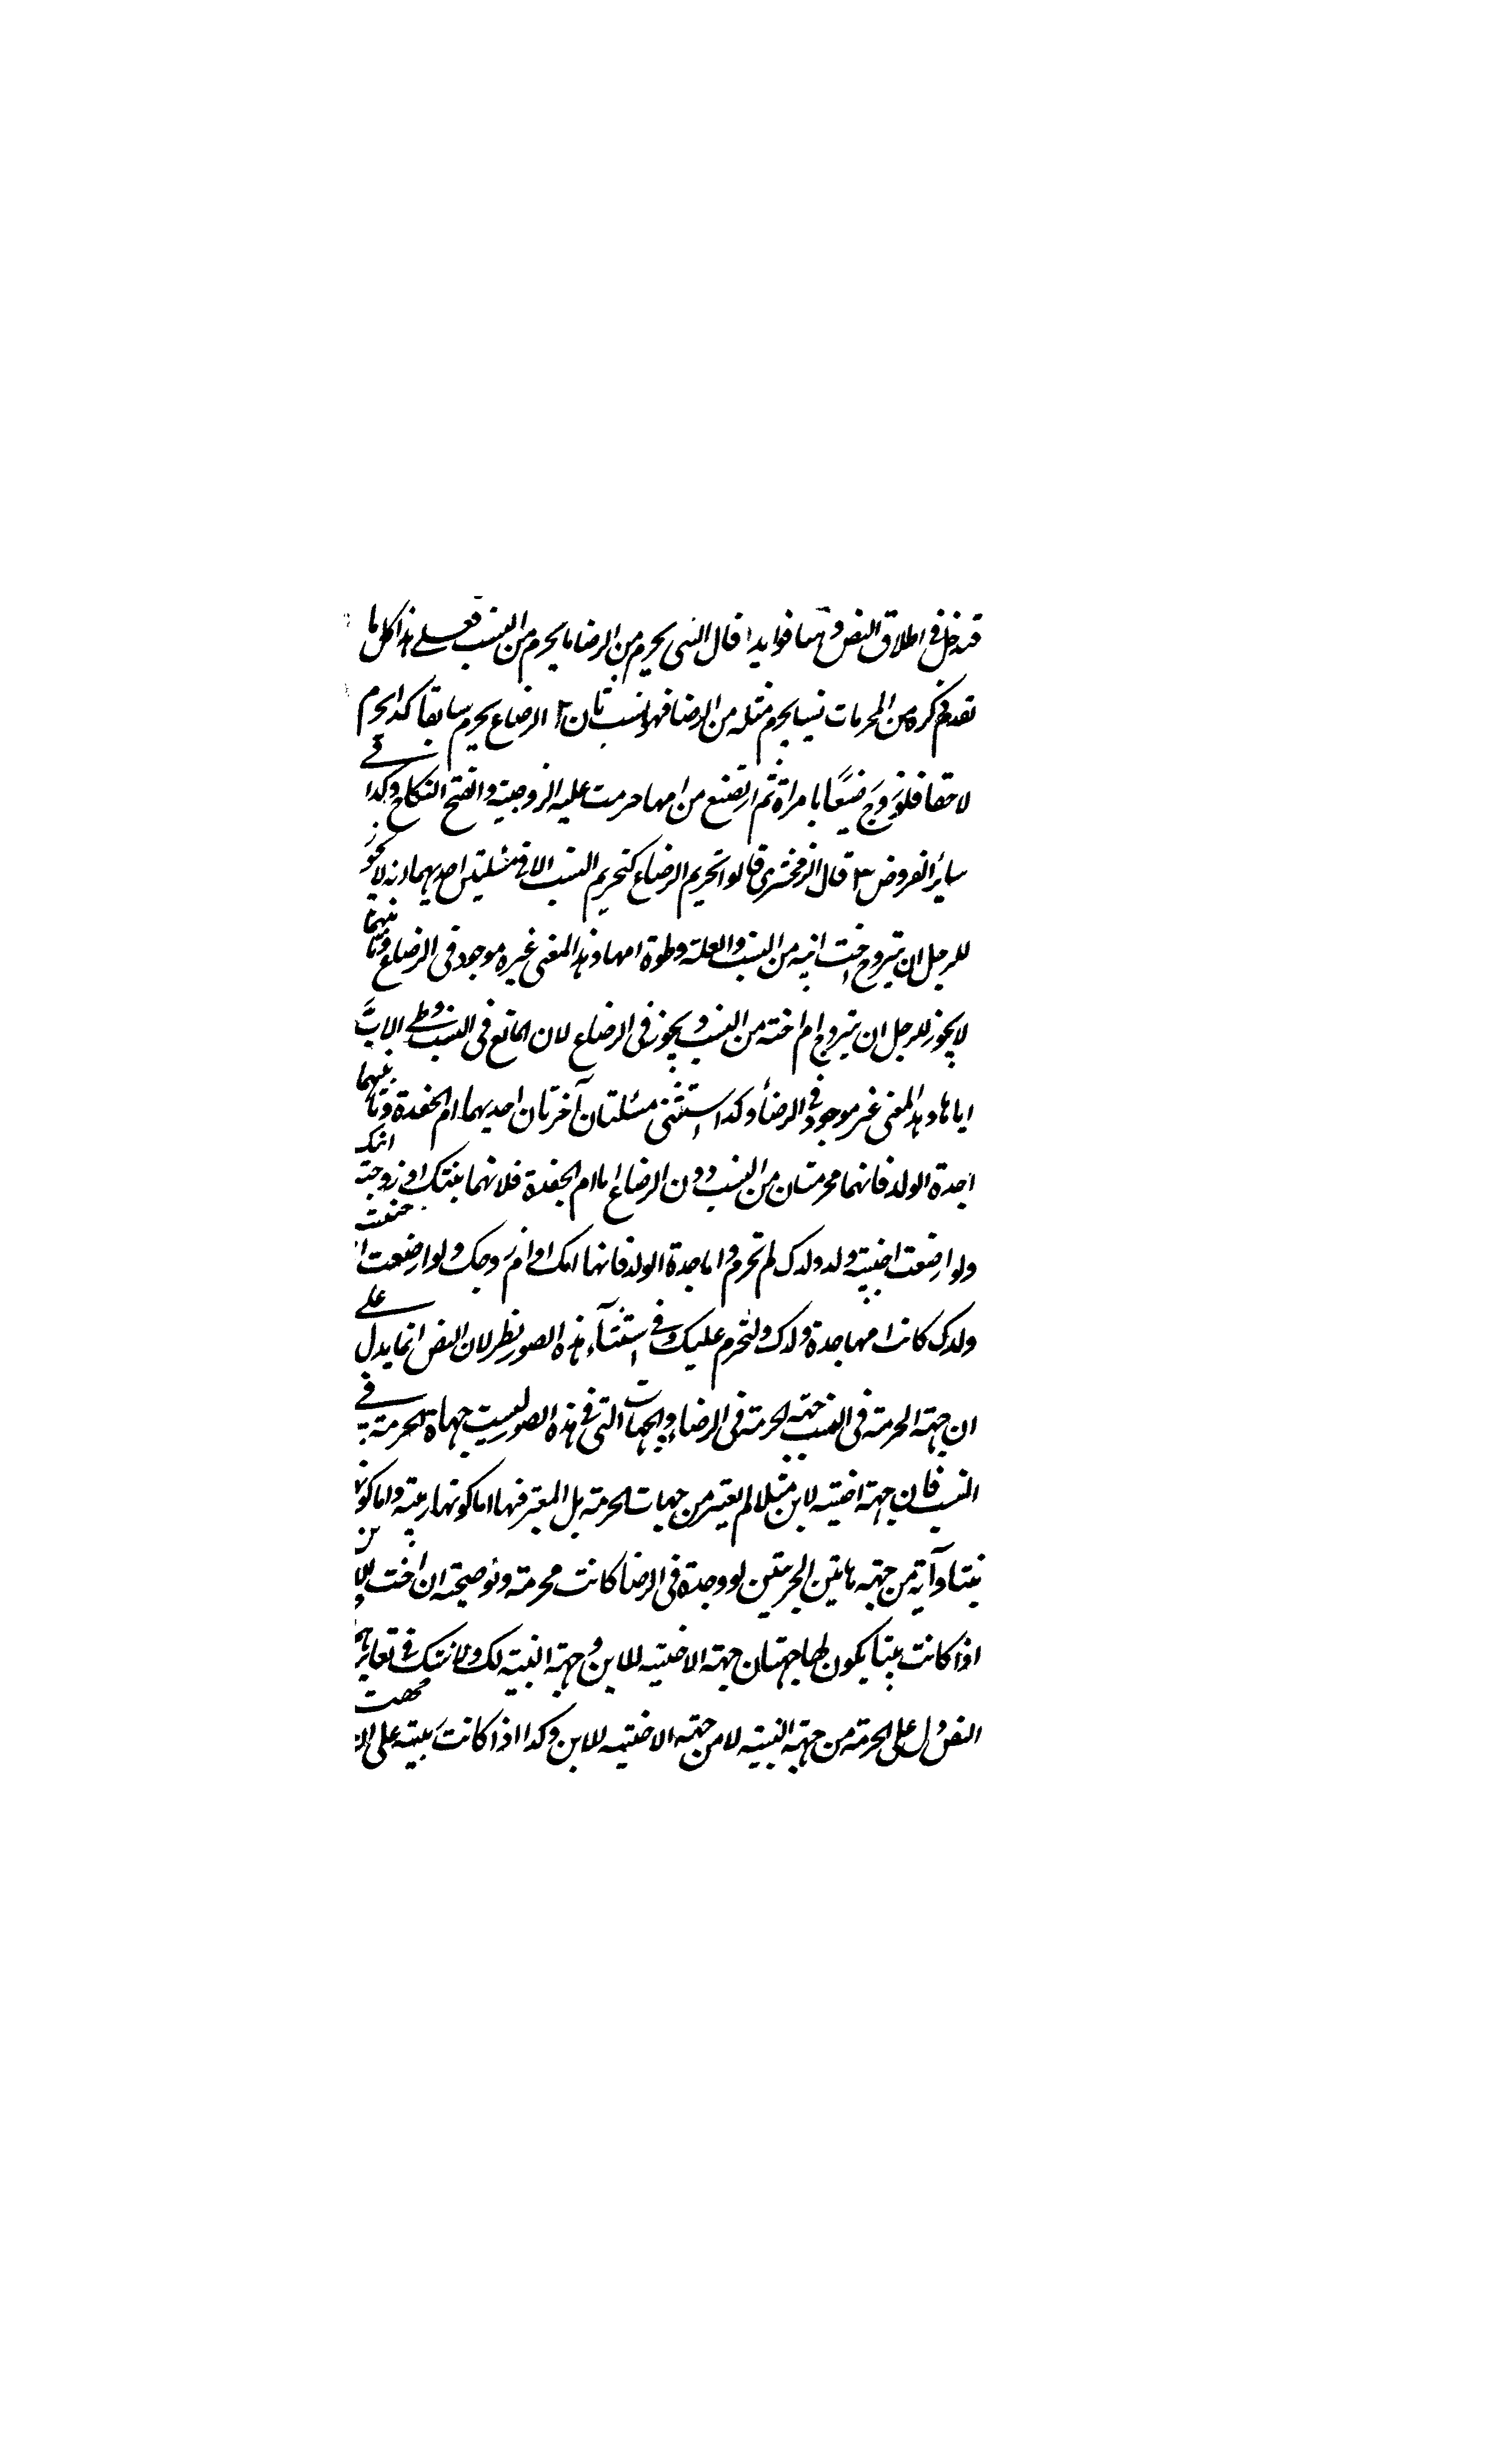 فتدخل في اطلاق النص وهنا فوايد ا قال النبي يحرم من الرضا ما يحرم من النسب فعلى هذا كل ما
تقدم ذكره من المحرمات نسبا يحرم مثله من الرضا فهو نسب ثان ٢ الرضاع يحرم سابقا كذا يحرم
لاحقا فلو تزوج رضيعا بامراة ثم ارتضع من امها حرمت عليه الزوجية وانفسخ النكاح وكذا في
ساير الفروض ٣ قال الزمخشري قالوا تحريم الرضاع كتحريم النسب الا في مسئلتين احديهما انه لا يجوز
للرجل ان يتزوج اخت ابنه من النسب والعلة وطوه امها وهذا المعنى غيره موجود في الرضاع وثانيهما
لا يجوز للرجل ان يتزوج ام اخته من النسب ويجوز في الرضاع لان المانع في النسب وطي الاب
اياها وهذا المعنى غير موجود في الرضا وكذا استثنى مسئلتان آخرتان احديهما ام الحفدة وثانيهما
جدة الولد فانهما محرمتان من النسب دون الرضاع اما ام الحفدة فلانهما بنتك او زوجة ابنك
ولو ارضعت اجنبية ولد ولدك لم تحرم واما جدة الولد فانها امك او ام زوجك ولو ارضعت اجنبية
ولدك كانت امها جدة ولدك ولم تحرم عليك وفي استثناء هذه الصور نظر لان النص انما يدل على
ان جهة الحرمة في النسب جهة الحرمة في الرضا والجهات التي في هذه الصور ليست جهاة الحرمة في
النسب فان جهة اختيه لابن مثلا لم يعتبر من جهات الحرمة بل المعتبر فيها اما كونها ربيبة واما كونها
بنتا وآية من جهة هاتين الحرمتين لو وجدة في الرضا كانت محرمة وتوضيحه ان اخت الابن
اذا كانت بنتا يكون لها جهتان جهة الاختيه للابن وجهة البنتية لك ولا شك في تغايرهما
النص دل على الحرمة من جهة البنتية لا من جهة الاختيه للابن وكذا اذا كانت ربيبة على